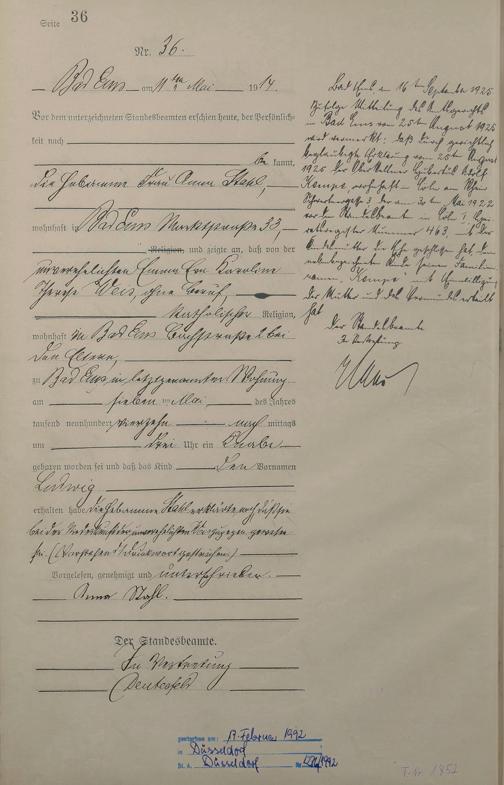 Seite 36
Nr. 36.
Bad Ems am 11ten Mai 1914
Vor dem unterzeichneten Standesbeamten erschien heute, der Persönlich-
keit nach
be kannt,
die Hebamme Frau Anna Stahl,
wohnhaft in Bad Ems Marktstraße 33,
Religion, und zeigte an, daß von der
unverehelichten Emma Eva Karoline
Weis, ohne Beruf,
katholischer Religion,
wohnhaft in Bad Ems Bachstraße 2 bei
den Eltern,
zu Bad Ems in letztgenannter Wohnung
am sieben ten Mai des Jahres
tausend neunhundert vierzehn nach mittags
um drei Uhr ein Knabe
geboren worden sei und daß das Kind den Vornamen
Ludwig
erhalten habe. die Hebamme Stahl erklärte, daß sie
bei der Niederkunft der unverehelichten Weis zugegen gewesen
sei. (Vorstehend 1 Druckwort gestrichen)
Vorgelesen, genehmigt und unterschrieben.
Anna Stahl.
Der Standesbeamte.
In Vertretung
Bad Ems, am 16ten September 1925
Zufolge Mitteilung des Amtsgerichts
Bad Ems vom 25ten August 1925
wird vermerkt: daß durch gerichtlich
beglaubigte Erklärung vom 25ten August
1925 der
Kempe, wohnhaft Köln am Rhein
3, der am 20 Mai 1922
vor dem Standesamte in Köln I,
Nummer 463, mit der
Kindesmutter die Ehe geschlossen hat, dem
nebenbezeichneten Kinde seinen Familien-
namen "Kempe" mit Einwilligung
der Mutter und des Vormundes erteilt
hat
Der Standesbeamte
In Vertretung
gestorben am: 17. Februar 1992
in Düsseldorf
St. A. Düsseldorf Nr. /1992